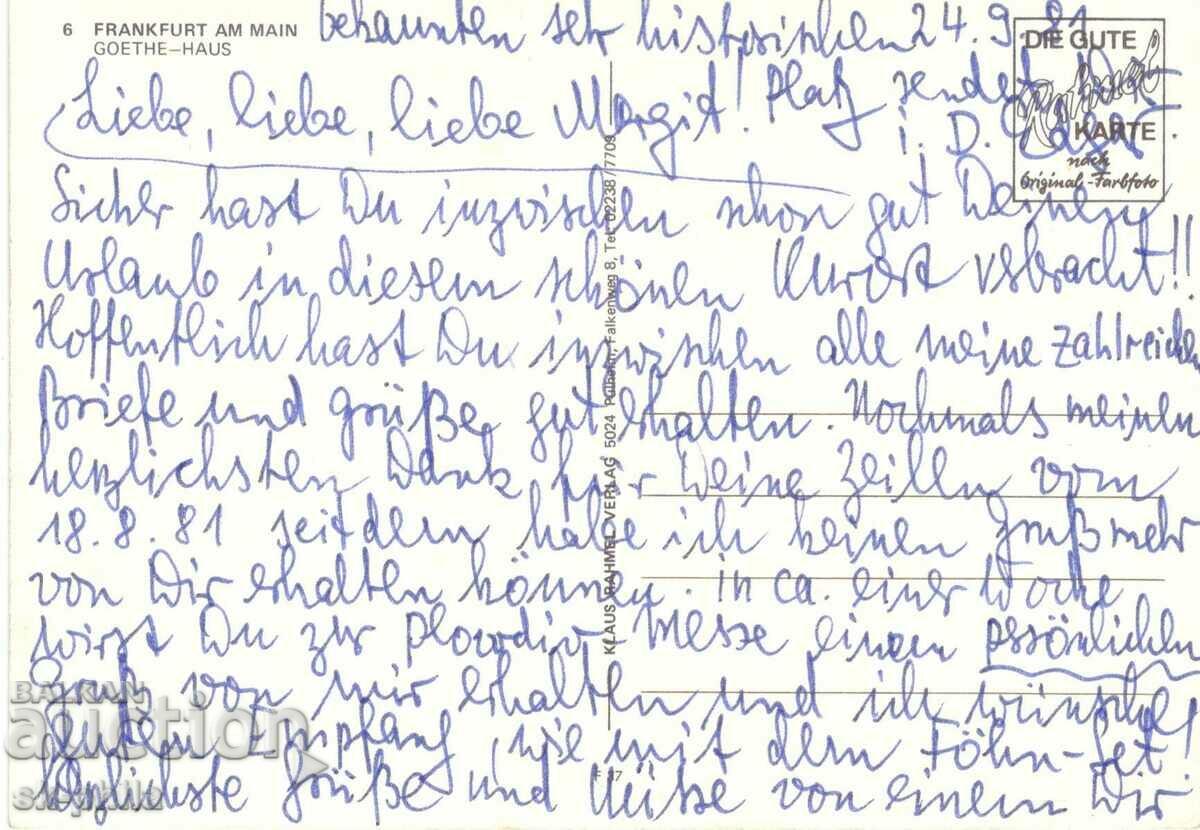 6 FRANKFURT AM MAIN
GOETHE–HAUS
bekannten sehr historischen 24.9.81
DIE GUTE
Rahmel
KARTE
nach
Original-Farbfoto
Liebe, liebe, liebe Margit! Platz sendet Dir
i. D.
Sicher hast Du inzwischen schon gut Deinen
Urlaub in diesem schönen Kurort verbracht!!
Hoffentlich hast Du inzwischen alle meine zahlreichen
Briefe und Grüße gut erhalten. Nochmals meinen
herzlichsten Dank für Deine Zeilen vom
18.8.81 seitdem habe ich keinen Gruß mehr
von Dir erhalten können. In ca. einer Woche
wirst Du zur Plovdiv-Messe einen persönlichen
Gruß von mir erhalten und ich wünsche
guten Empfang, wie mit dem Föhn-Set!
Herzlichste Grüße und Küsse von einem Dir
KLAUS RAHMEL VERLAG 5024 Pulheim, Falkenweg 8, Tel. 02238/7709
F 37
BALKAN
auction